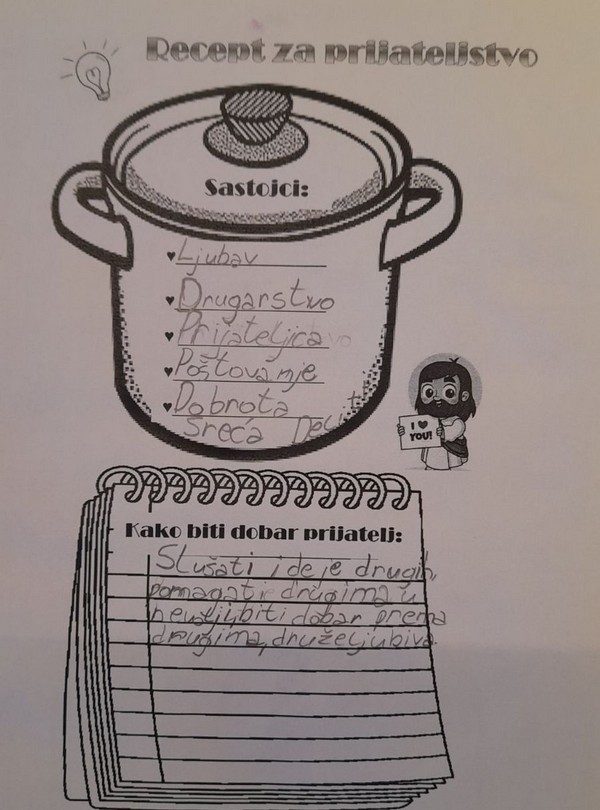 Recept za prijateljstvo
Sastojci:
Ljubav
Drugarstvo
Prijateljica
Poštovanje
Dobrota
Sreća
I ♥
YOU!
Kako biti dobar prijatelj:
Slušati ideje drugih,
pomagati drugima u
biti dobar prema
drugima, druželjubiva.